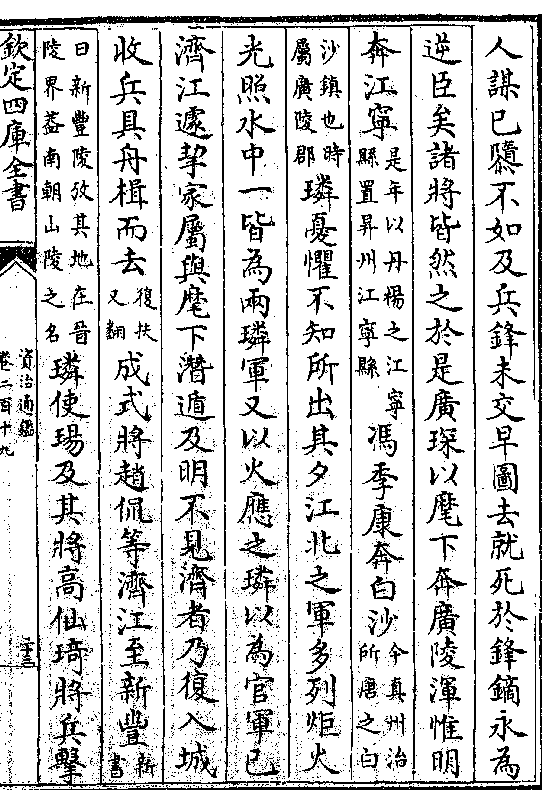 人謀已隳不如及兵鋒未交早圖去就死於鋒鏑永為
逆臣矣諸將皆然之於是廣琛以麾下奔廣陵渾惟明
奔江寧是年以丹楊之江寧縣置昇州江寧縣馮季康奔白沙今真州治所唐之白
沙鎮也時屬廣陵郡璘憂懼不知所出其夕江北之軍多列炬火
光照水中一皆為兩璘軍又以火應之璘以為官軍已
濟江遽挈家屬與麾下潛遁及明不見濟者乃復入城
收兵具舟楫而去復扶又翻成式將趙侃等濟江至新豐新書
曰新豐陵攷其地在晉陵界葢南朝山陵之名璘使瑒及其將高仙琦將兵擊
欽定四庫全書
資治通鑑
卷二百十九
二十三